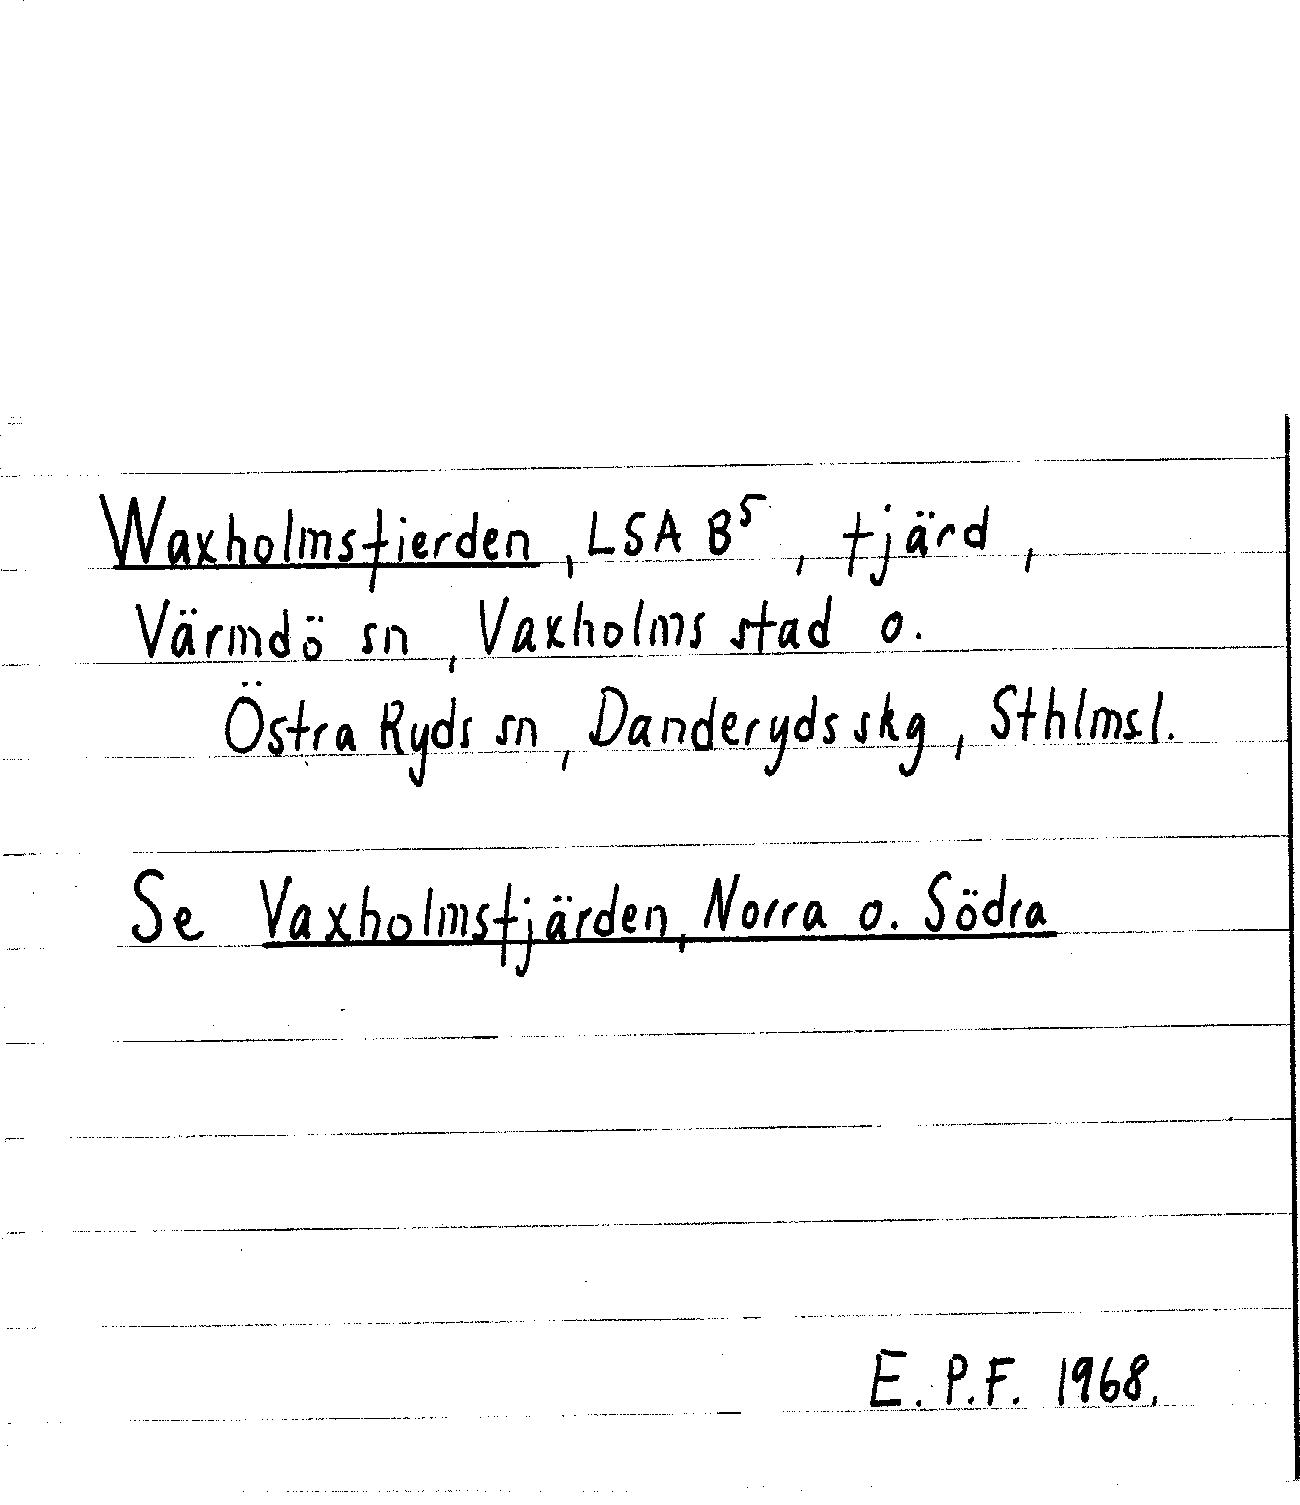 Waxholmsfierden, LSA B⁵, fjärd,
Värmdö sn, Vaxholms stad o.
Östra Ryds sn, Danderyds skg, Sthlms l.
Se Vaxholmsfjärden, Norra o. Södra
E. P. F. 1968.